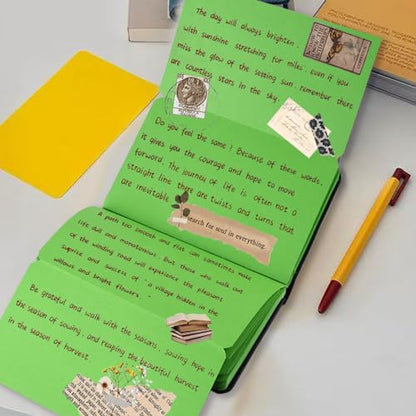 The day will always brighten,
with sunshine stretching for miles. even if you
miss the glow of the setting sun, remember there
are countless stars in the sky.
Do you feel the same? Because of these words,
it gives you the courage and hope to move
forward. The journey of life is often not a
straight line there are twists and turns that
are inevitable.
search for soul in everything.
A path too smooth and flat can sometimes make
life dull and monotonous. But those who walk out
of the winding road will experience the pleasant
suprise and success of "a village hidden in the
willows and bright flowers."
Be grateful and walk with the seasons, sowing hope in
the season of sowing, and reaping the beautiful harvest
in the season of harvest.